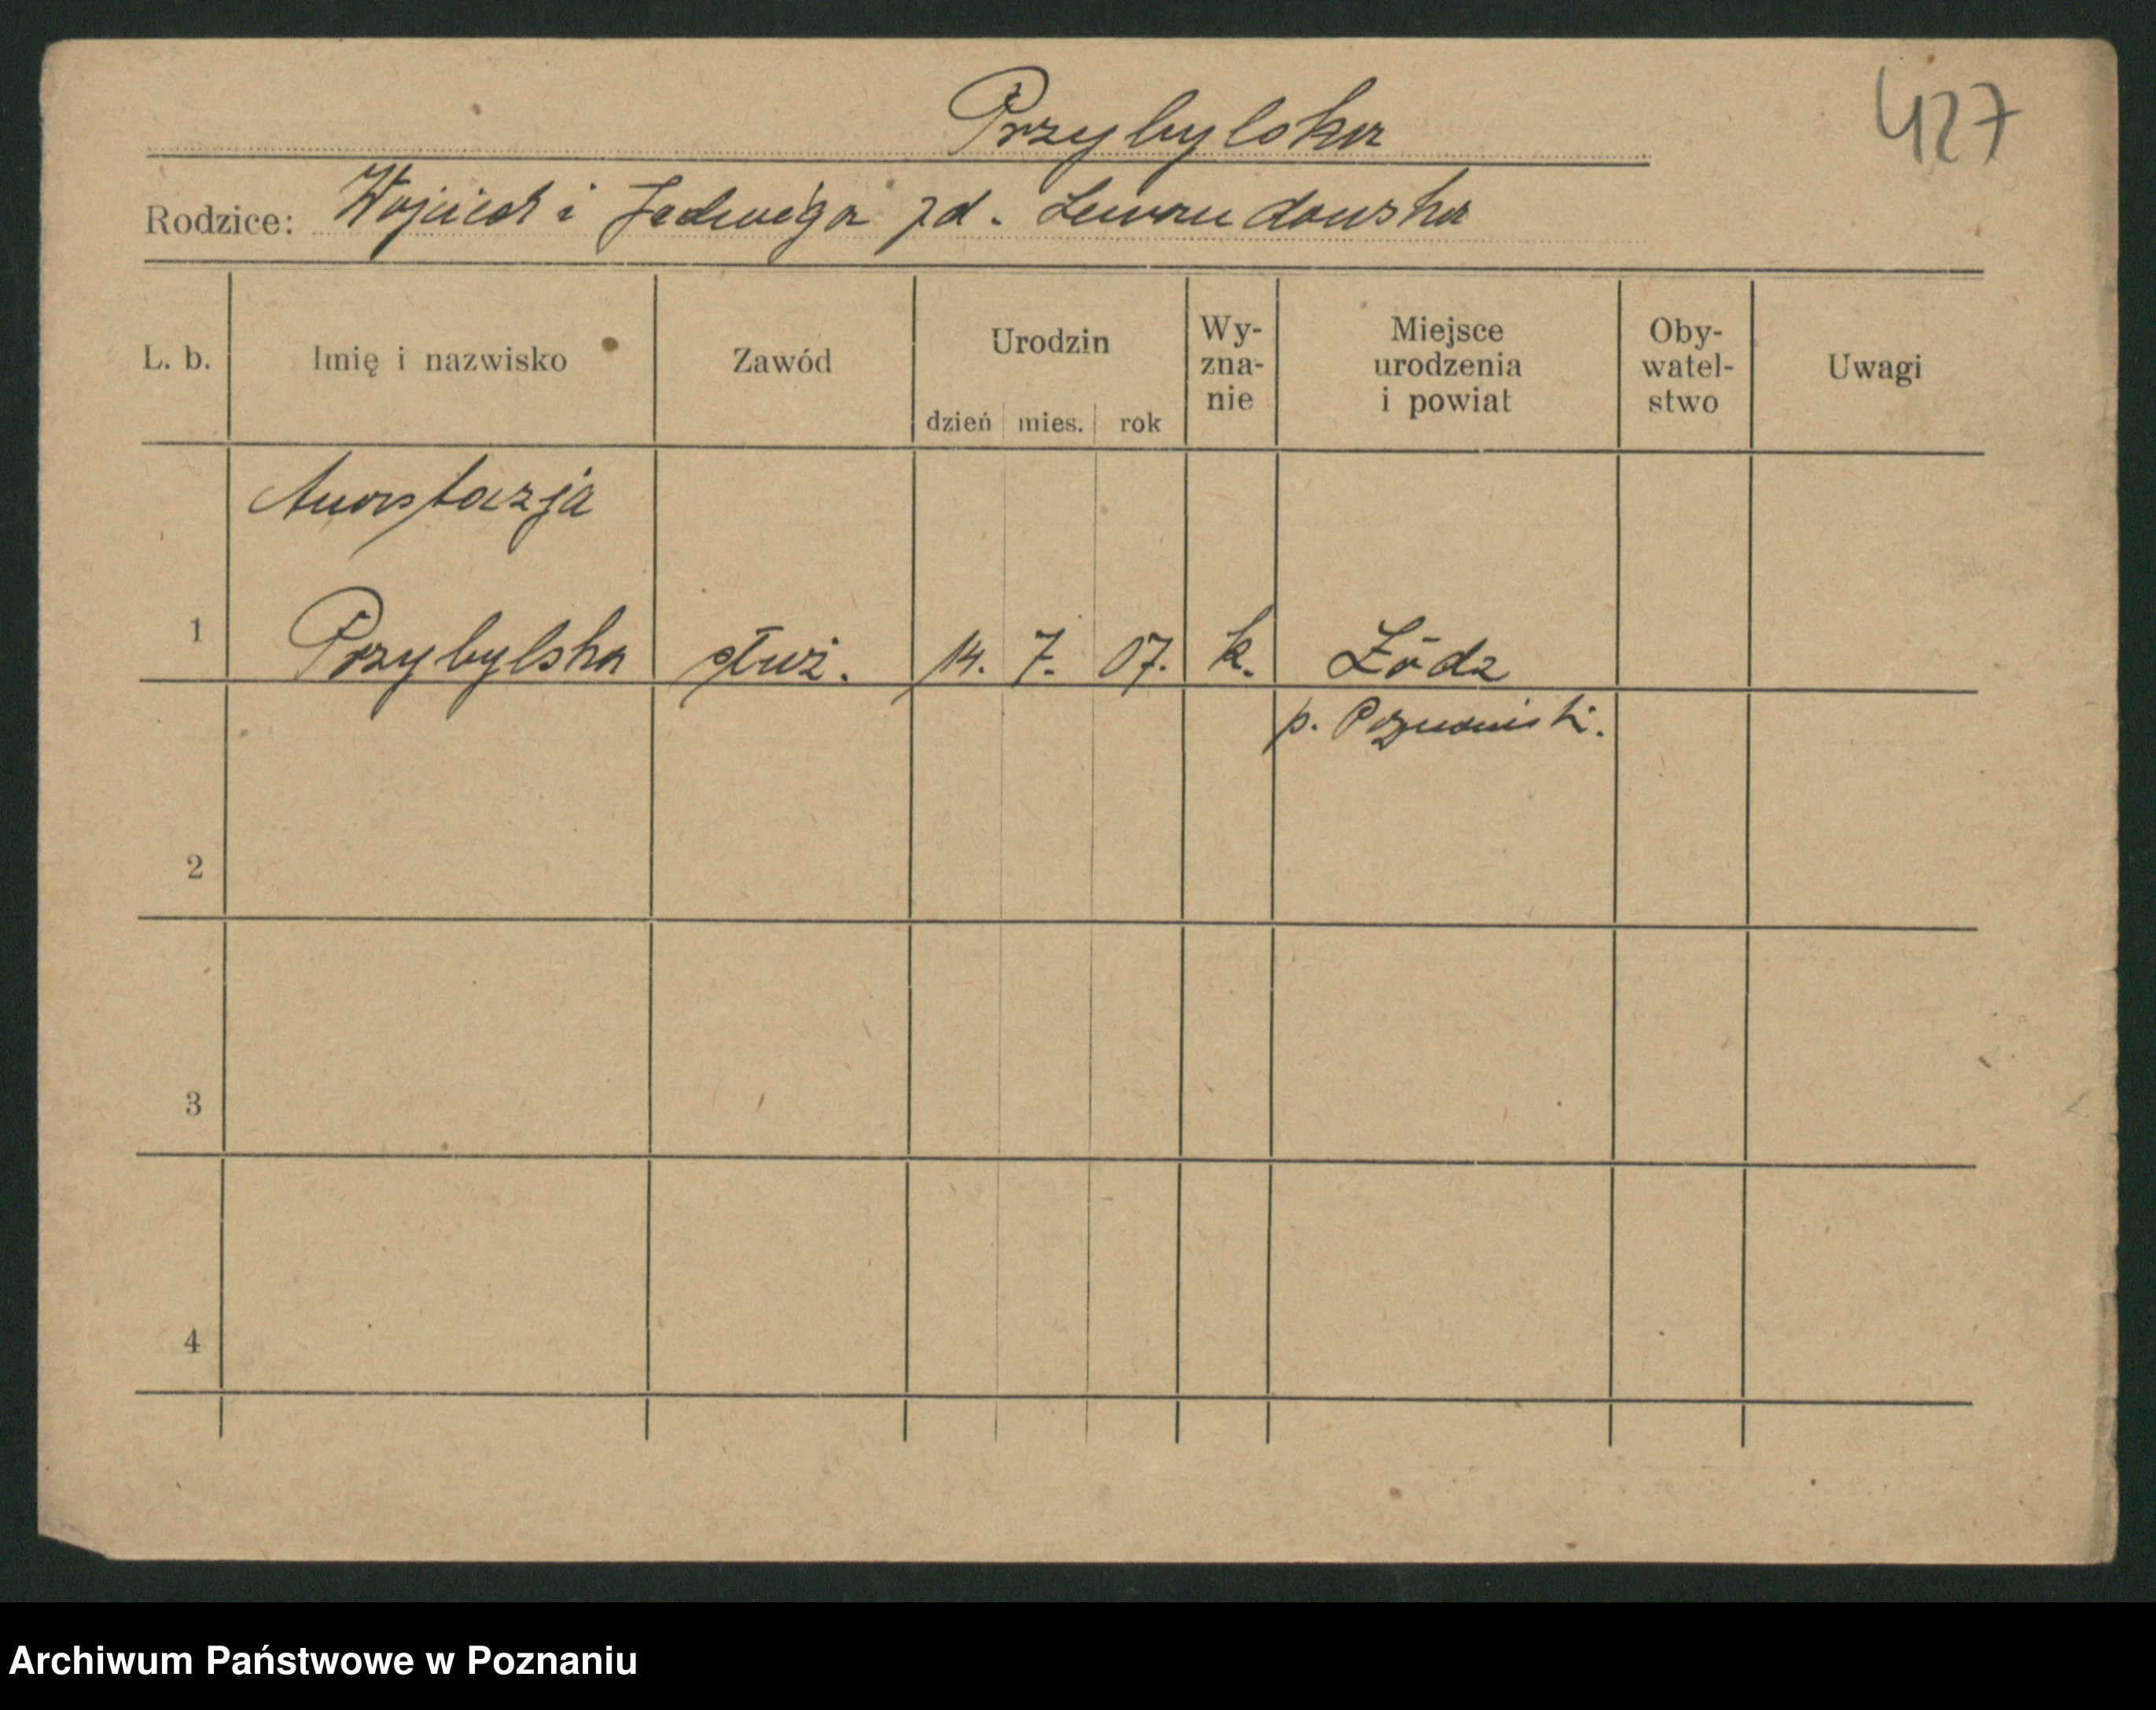 427
Przybylska
Rodzice: Wojciech i Jadwiga zd. Lewandowska
L. b. Imię i nazwisko Zawód Urodzin dzień mies. rok Wy-zna-nie Miejsce urodzenia i powiat Oby-watel-stwo Uwagi
Anastazja
1 Przybylska służ. 14. 7. 07. k. Łódz
p. Poznański.
2
3
4
Archiwum Państwowe w Poznaniu